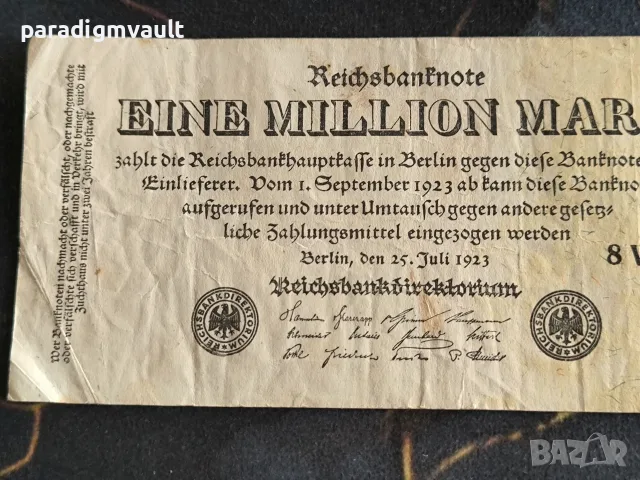 paradigmvault
Reichsbanknote
EINE MILLION MAR
zahlt die Reichsbankhauptkasse in Berlin gegen diese Banknote
Einlieferer. Vom 1. September 1923 ab kann diese Bankno
aufgerufen und unter Umtausch gegen andere gesetz-
liche Zahlungsmittel eingezogen werden
Berlin, den 25. Juli 1923
Reichsbankdirektorium
8
REICHSBANKDIREKTORIUM
REICHSBANKDIREKTORIUM
Wer Banknoten nachmacht oder verfälscht, oder nachgemachte
oder verfälschte sich verschafft und in Verkehr bringt, wird mit
Zuchthaus nicht unter zwei Jahren bestraft
BAZAR